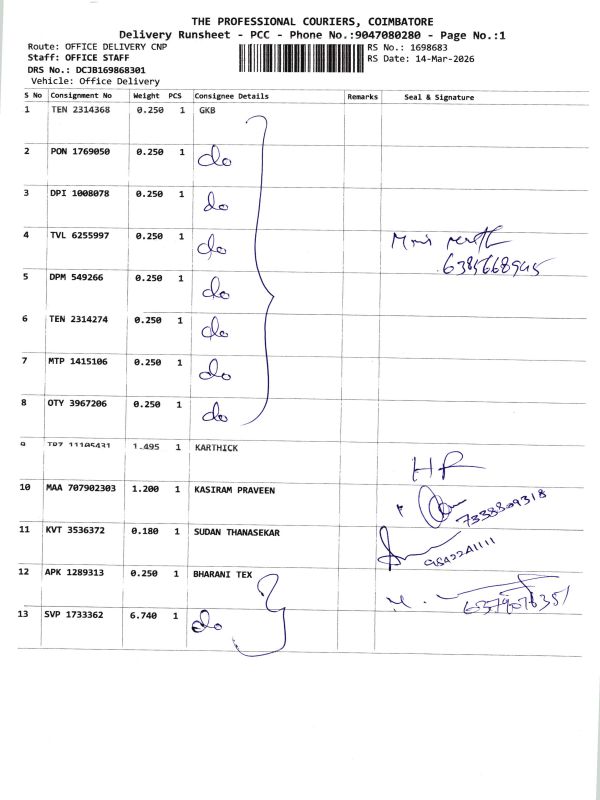 THE PROFESSIONAL COURIERS, COIMBATORE
Delivery Runsheet - PCC - Phone No.:9047080280 - Page No.:1
Route: OFFICE DELIVERY CNP RS No.: 1698683
Staff: OFFICE STAFF RS Date: 14-Mar-2026
DRS No.: DCJB169868301
Vehicle: Office Delivery
S No Consignment No Weight PCS Consignee Details Remarks Seal & Signature
1 TEN 2314368 0.250 1 GKB
2 PON 1769050 0.250 1 do
3 DPI 1008078 0.250 1 do
4 TVL 6255997 0.250 1 do
6385668945
5 DPM 549266 0.250 1 do
6 TEN 2314274 0.250 1 do
7 MTP 1415106 0.250 1 do
8 OTY 3967206 0.250 1 do
9 1.495 1 KARTHICK
10 MAA 707902303 1.200 1 KASIRAM PRAVEEN
7338809318
11 KVT 3536372 0.180 1 SUDAN THANASEKAR
9842241111
12 APK 1289313 0.250 1 BHARANI TEX
6379076351
13 SVP 1733362 6.740 1 do